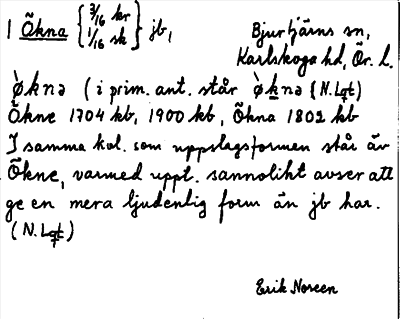 1 Ökna { 3/16 kr 1/16 sk } jb, Bjurtjärns sn,
Karlskoga hd, Ör. l.
ø̀knə (i prim. ant. står ø̀knə (N.Lqt)
Ökne 1704 kb, 1900 kb, Ökna 1802 kb
I samma kol. som uppslagsformen står äv
Ökne, varmed uppt. sannolikt avser att
ge en mera ljudenlig form än jb har.
(N.Lqt)
Erik Noreen